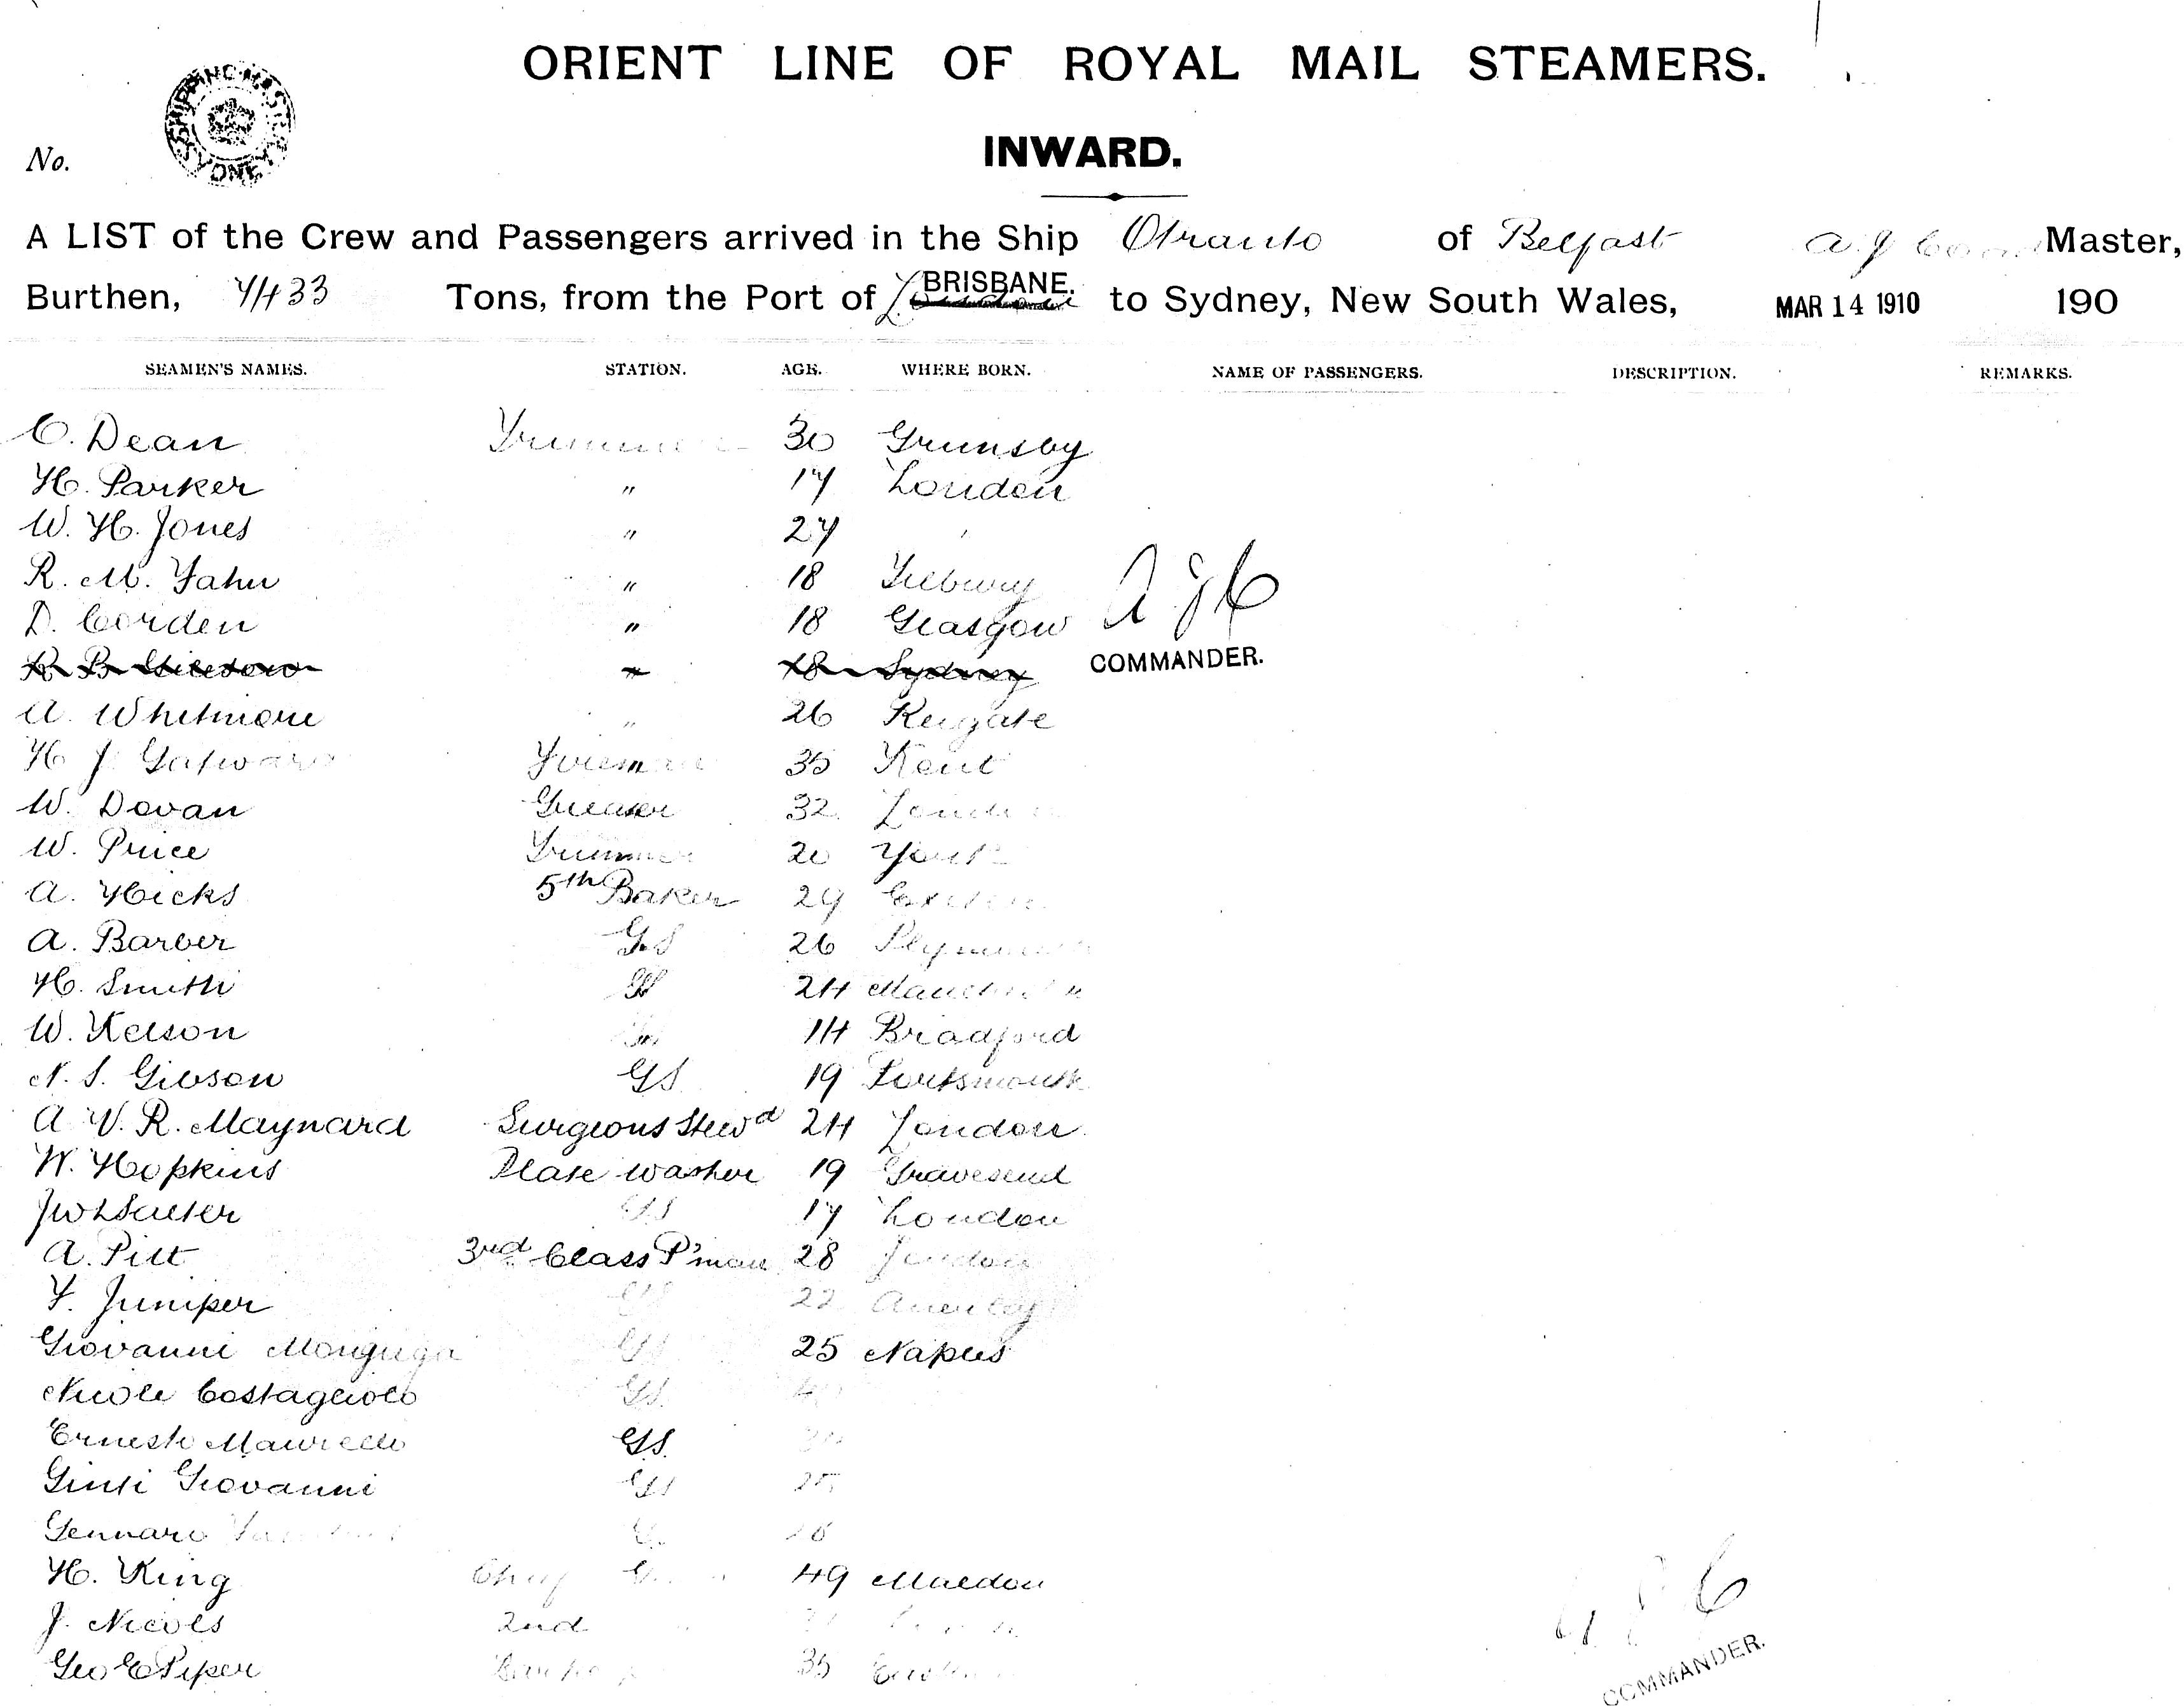 ORIENT LINE OF ROYAL MAIL STEAMERS.
SHIPPING MASTER SYDNEY
No.
INWARD.
A LIST of the Crew and Passengers arrived in the Ship Otranto of Belfast A J Master,
Burthen, 7433 Tons, from the Port of London BRISBANE. to Sydney, New South Wales, MAR 14 1910 190
SEAMEN'S NAMES. STATION. AGE. WHERE BORN. NAME OF PASSENGERS. DESCRIPTION. REMARKS.
C. Dean Trimmer 30 Grimsby
H. Parker " 17 London
W. H. Jones " 27
R. M. Fahn " 18 Tilbury
D. Corden " 18 Glasgow
A J C
COMMANDER.
R B " 18 Sydney
A. Whitmore " 26 Reigate
H J Fireman 35 Kent
W. Devan Greaser 32 London
W. Price Trimmer 20 York
A. Hicks 5th Baker 29
A. Barber G.S 26 Plymouth
H. Smith GS 24 Manchester
W. Kelson 14 Bradford
N. S. Gibson GS 19 Portsmouth
A V. R. Maynard Surgeons Stewd 24 London
W. Hopkins Plate washer 19 Gravesend
J W L Salter GS 17 London
A. Pitt 3rd Class P'man 28 London
F. Juniper GS 22 Anerley
Giovanni GS 25 Naples
Costagliolo GS
Ernesto Maurello GS
Giusti Giovanni GS 25
Gennaro
H. King Chief 49 Maldon
J. Nicols 2nd
Geo E Piper 35
COMMANDER.